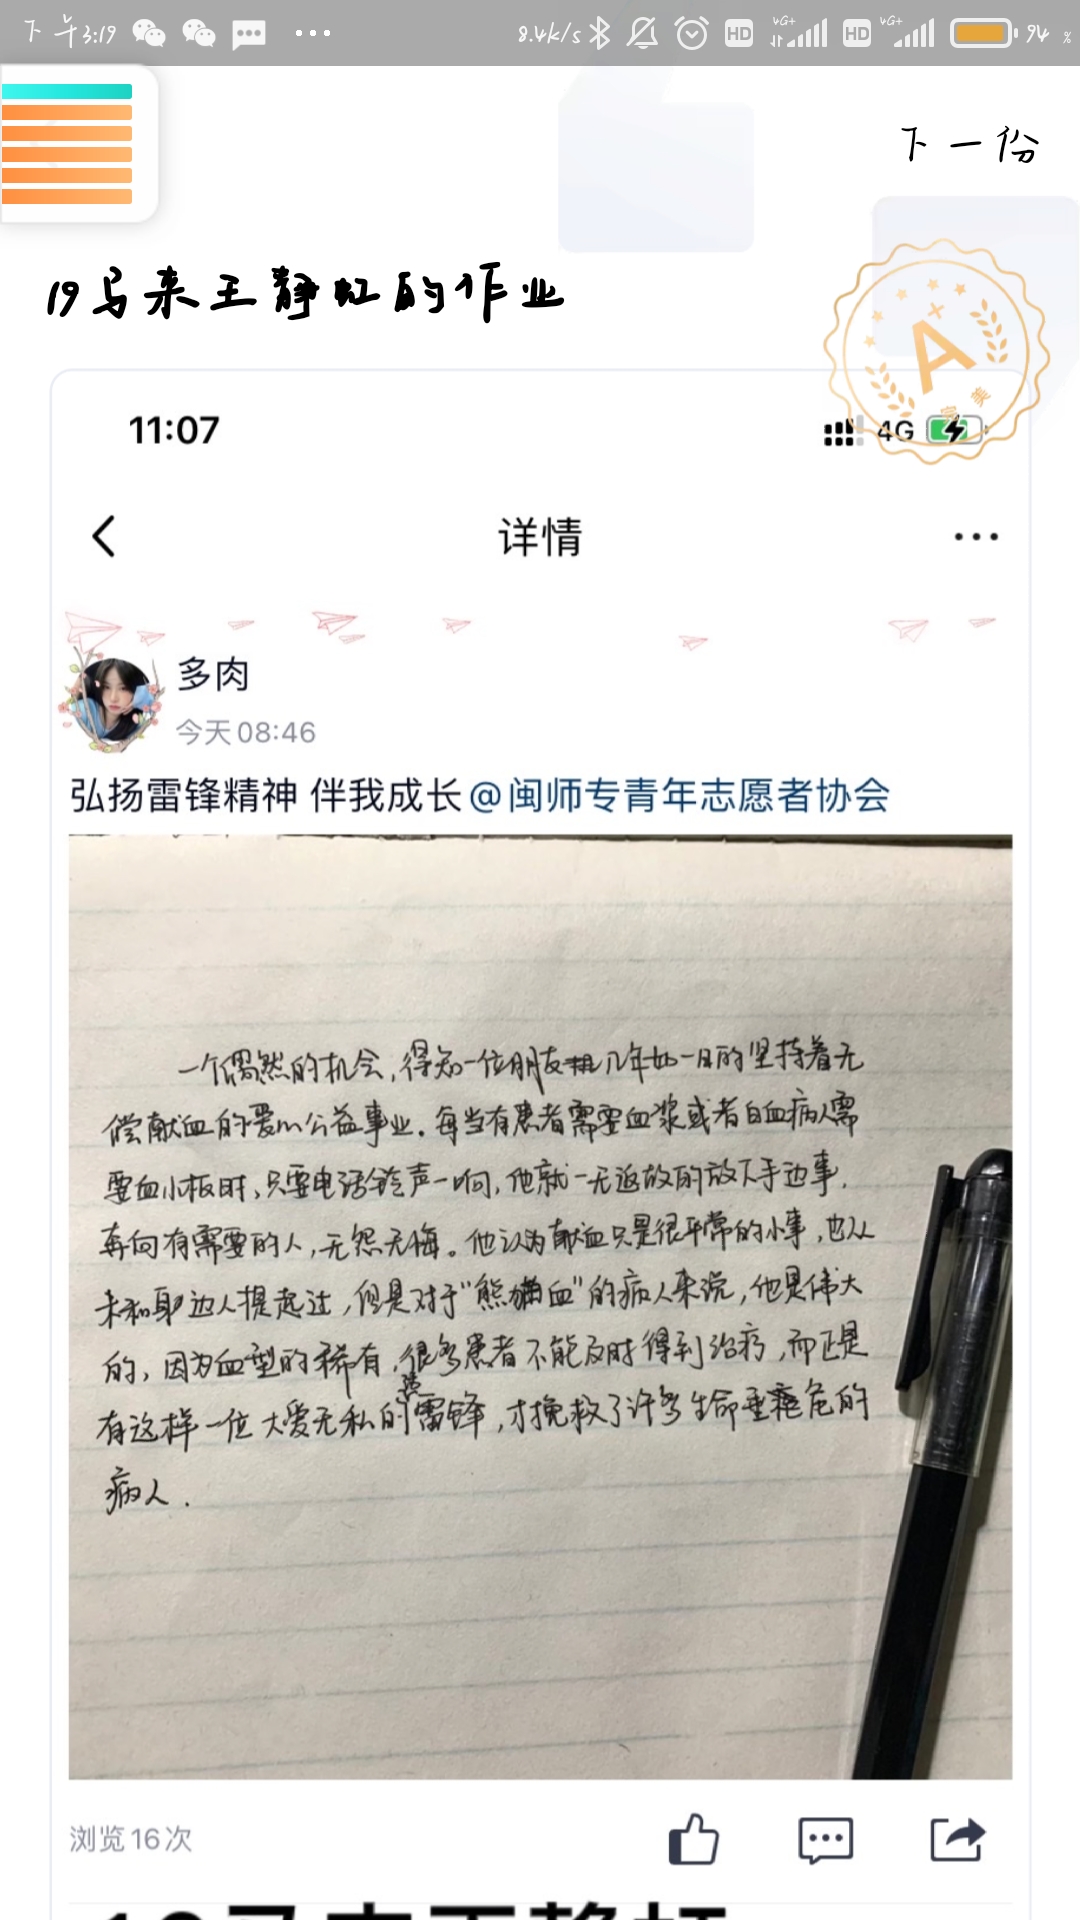 下午3:19
8.4k/s
HD
4G+
HD
4G+
94
%
下一份
19马来王静虹的作业
A
完美
11:07
4G
详情
多肉
今天08:46
弘扬雷锋精神 伴我成长@闽师专青年志愿者协会
一个偶然的机会,得知一位朋友几年如一日的坚持着无
偿献血的爱心公益事业.每当有患者需要血浆或者白血病人需
要血小板时,只要电话铃声一响,他就一无返故的放下手边事.
奔向有需要的人,无怨无悔。他认为献血只是很平常的小事,也从
未和身边人提起过,但是对于"熊猫血"的病人来说,他是伟大
的,因为血型的稀有,很多患者不能及时得到治疗,而正是
有这样一位大爱无私的活雷锋,才挽救了许多生命垂危的
病人.
浏览16次